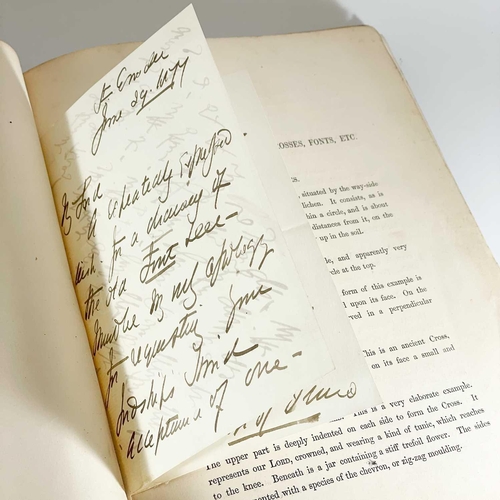 St Enoder
June 29. 1877
My Lord
A repeatedly expressed
wish for a drawing of
the old Font here -
must be my apology
for requesting your
Lordships kind
acceptance of one -
OSSES, FONTS, ETC.
situated by the way-side
lichen. It consists, as
hin a circle, and is about
distances from it, on the
up in the soil.
le, and apparently very
cle at the top.
form of this example is
l upon its face. On the
ved in a perpendicular
This is an ancient Cross.
on its face a small and
This is a very elaborate example.
The upper part is deeply indented on each side to form the Cross. It
represents our LORD, crowned, and wearing a kind of tunic, which reaches
to the knee. Beneath is a jar containing a stiff trefoil flower. The sides
ented with a species of the chevron, or zig-zag moulding.